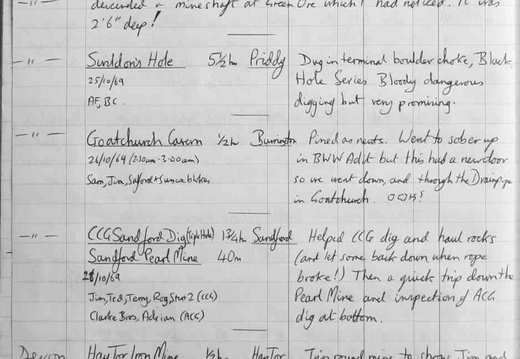 descended a mineshaft at Green Ore which I had noticed. It was
2'6" deep!
—"— Swildon's Hole 5½hr Priddy Dug in terminal boulder choke, Black
25/10/69 Hole Series Bloody dangerous
AF, BC. digging but very promising.
—"— Goatchurch Cavern ½hr Burrington Pissed as newts. Went to sober up
26/10/69 (2.30am-3.00am) in BWW Adit but this had a new door
Sam, Jim, so we went down, and through the Drainpipe
in Goatchurch.
—"— CCG Sandford Dig (Triple Hole) 1¾hr Sandford Helped CCG dig and haul rocks
Sandford Pearl Mine 40m (and let some back down when rope
26/10/69 broke!) Then a quick trip down the
Jim, Ted, Terry, Rog Stur 2 (CCG) Pearl Mine and inspection of ACG
Clarke Bros, Adrian (ACG) dig at bottom.
Devon HayTor Iron Mine ½hr HayTor Trip round mine to show Jim and